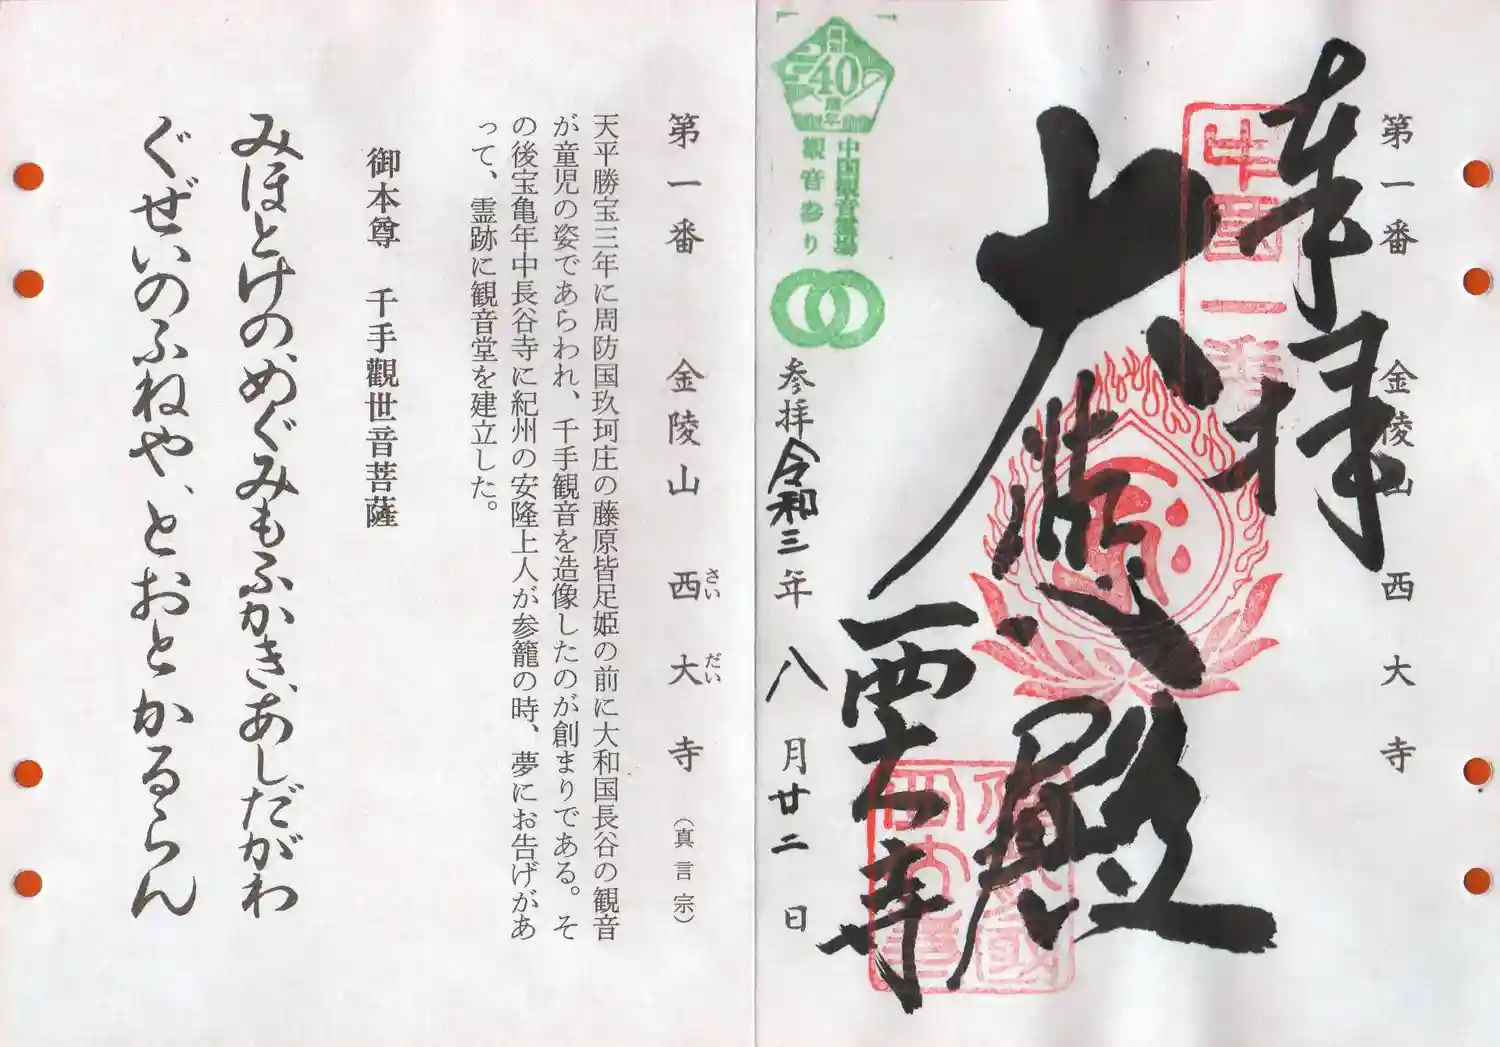 第一番 金陵山 西大寺
奉拝
中国一番
大悲殿
西大寺
開創40周年
中国観音霊場
観音参り
参拝 令和三年 八月廿二日
第一番 金陵山 西大寺（真言宗）
さい だい
天平勝宝三年に周防国玖珂庄の藤原皆足姫の前に大和国長谷の観音
が童児の姿であらわれ、千手観音を造像したのが創まりである。そ
の後宝亀年中長谷寺に紀州の安隆上人が参籠の時、夢にお告げがあ
って、霊跡に観音堂を建立した。
御本尊 千手觀世音菩薩
みほとけの、めぐみもふかき、あしだがわ
ぐぜいのふねや、とおとかるらん